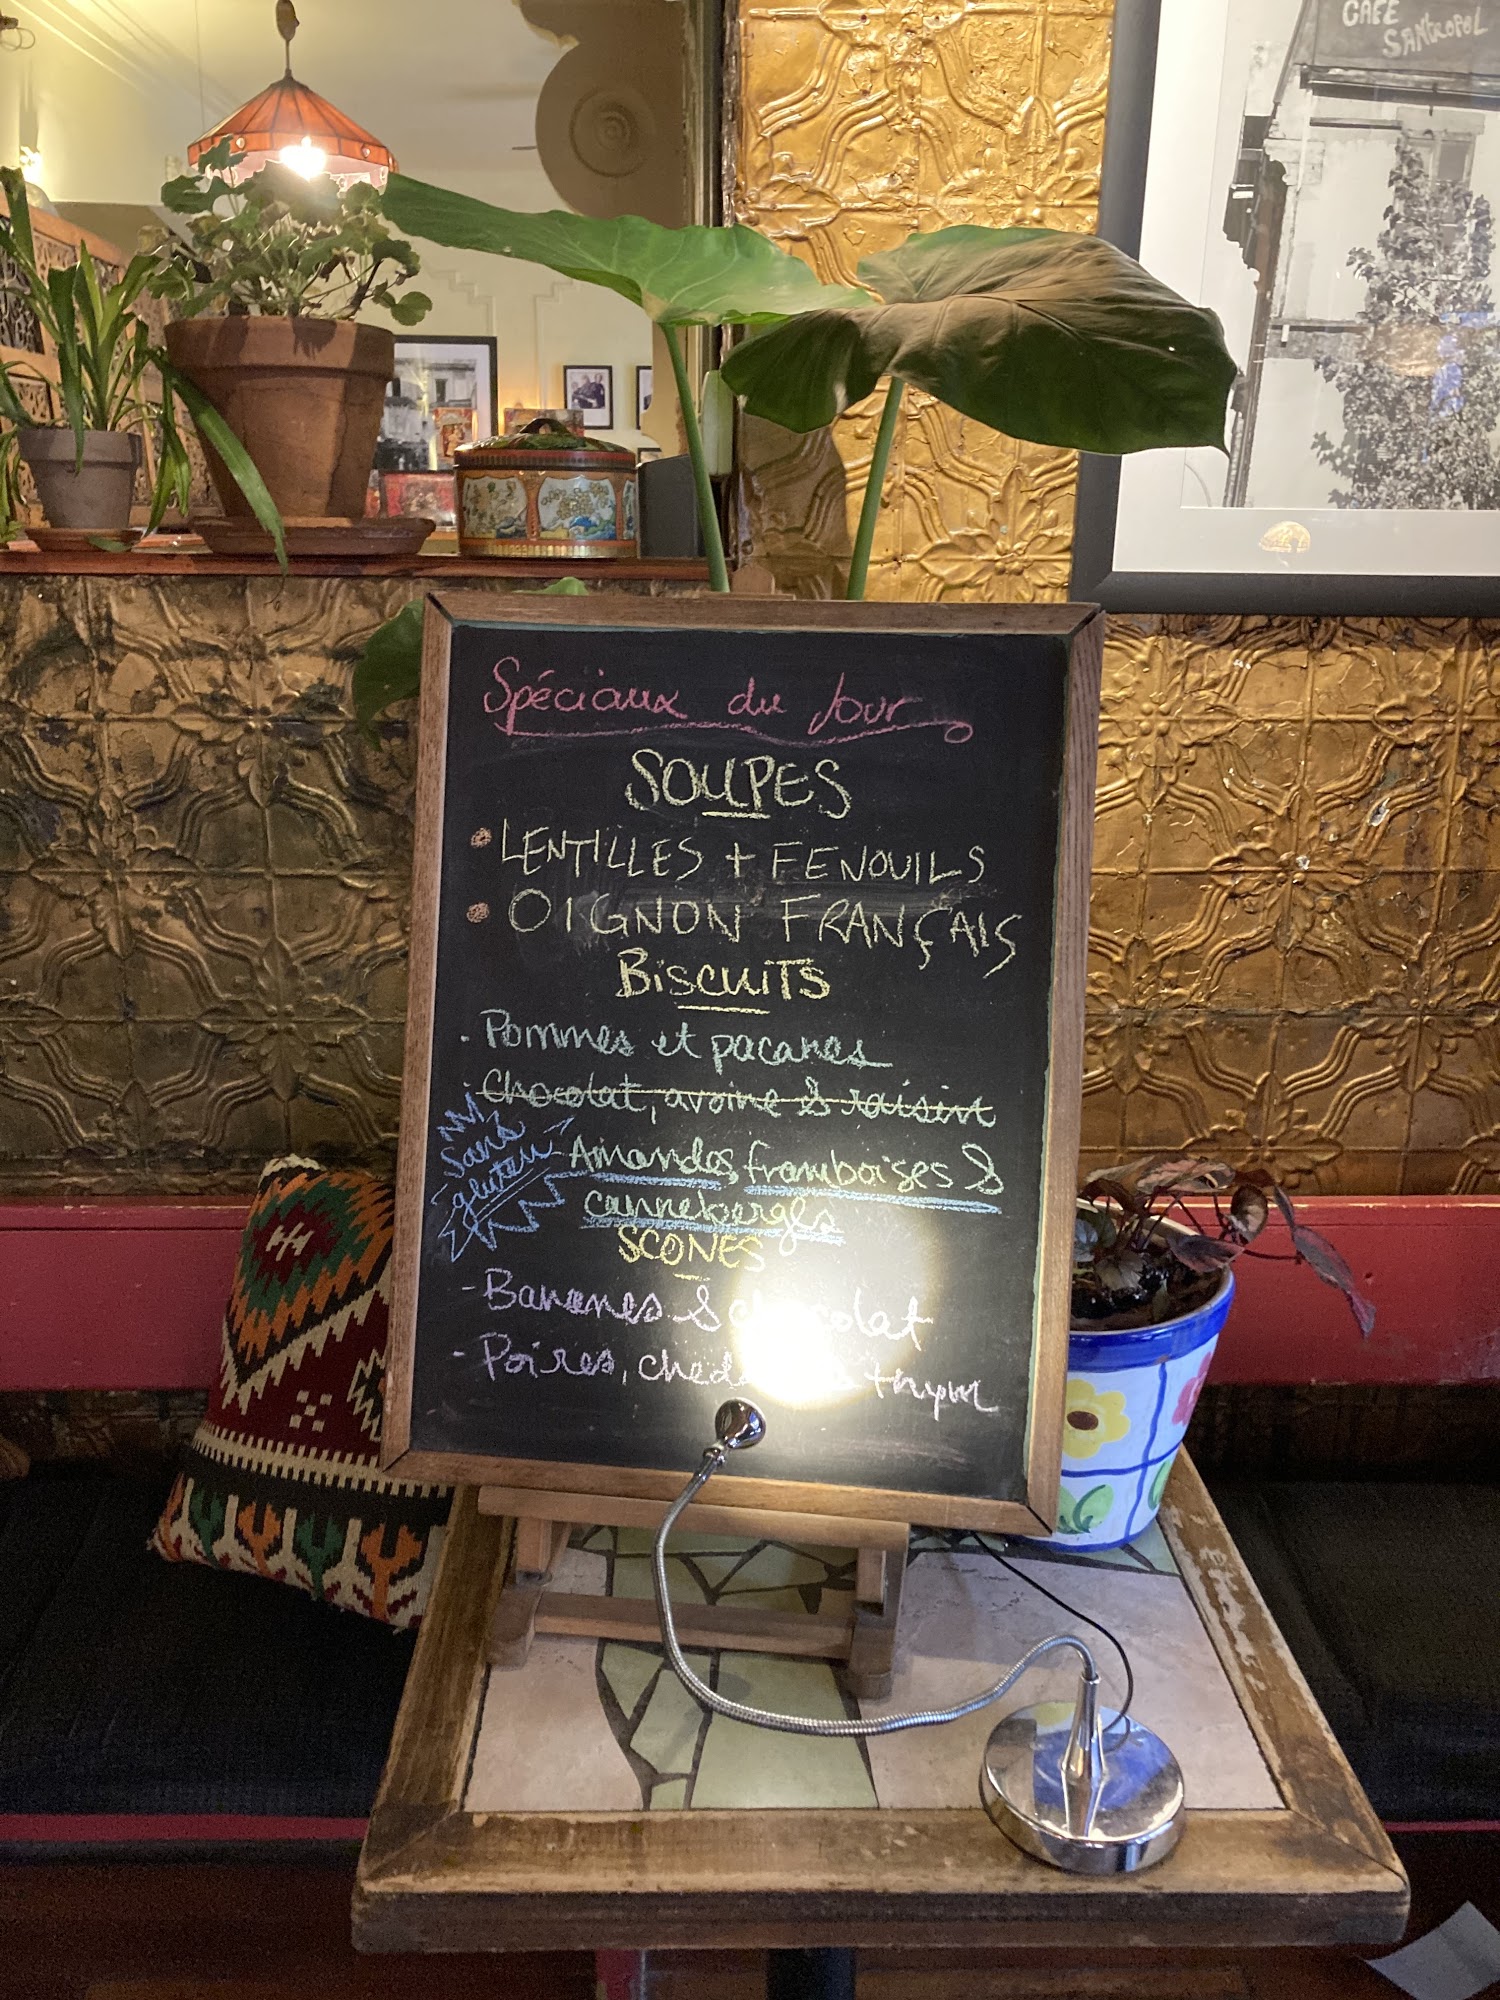 CAFE
SANTROPOL
Spéciaux du Jour
SOUPES
• LENTILLES + FENOUILS
• OIGNON FRANÇAIS
BISCUITS
- Pommes et pacanes
Chocolat, avoine & raisins
Sans
gluten
Amandes, framboises &
canneberges
SCONES
- Bananes & chocolat
- Poires, thym